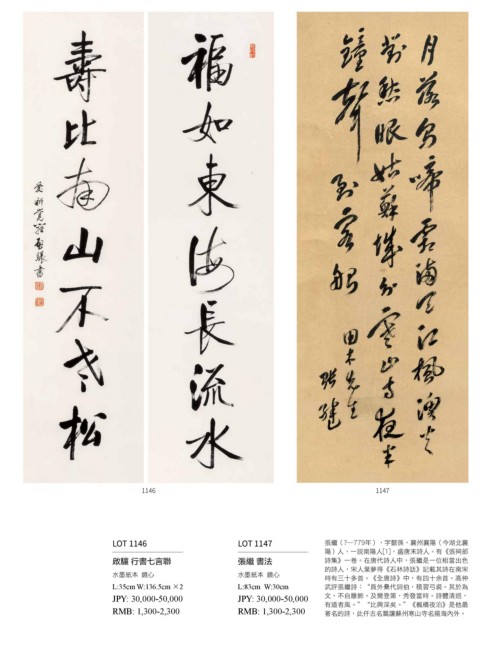 福如東海長流水
壽比南山不老松
愛新覺羅啟驤書
月落烏啼霜滿天江楓漁火
對愁眠姑蘇城外寒山寺夜半
鐘聲到客船
田木先生
張繼
1146
1147
LOT 1146
啟驤 行書七言聯
水墨紙本 鏡心
L:35cm W:136.5cm ×2
JPY: 30,000-50,000
RMB: 1,300-2,300
LOT 1147
張繼 書法
水墨紙本 鏡心
L:83cm W:30cm
JPY: 30,000-50,000
RMB: 1,300-2,300
張繼（?—779年），字懿孫，襄州襄陽（今湖北襄
陽）人，一說南陽人[1]，盛唐末詩人，有《張祠部
詩集》一卷。在唐代詩人中，張繼是一位相當出色
的詩人，宋人葉夢得《石林詩話》記載其詩在南宋
時有三十多首，《全唐詩》中，有四十余首。高仲
武評張繼詩：“員外累代詞伯，積習弓裘。其於為
文，不自雕飾。及爾登第，秀發當時。詩體清迥，
有道者風。”“比興深矣。”《楓橋夜泊》是他最
著名的詩，此仟古名篇讓蘇州寒山寺名揚海內外。